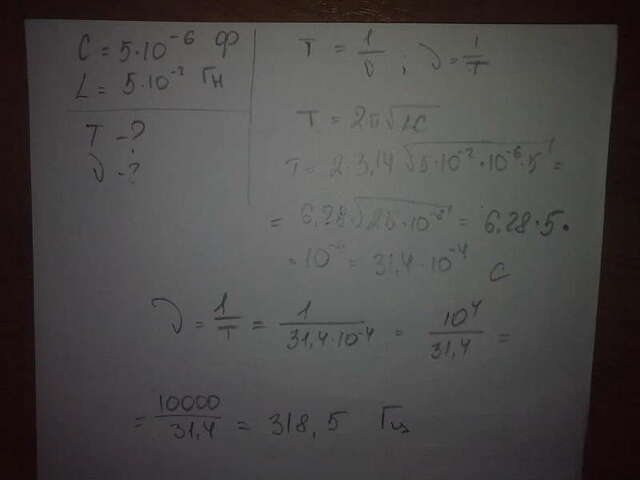 C = 5·10⁻⁶ Ф
L = 5·10⁻² Гн
T - ?
ν - ?
T = 1/ν ; ν = 1/T
T = 2π√LC
T = 2·3,14 √5·10⁻²·10⁻⁶·5 =
= 6,28 √25·10⁻⁸ = 6,28·5·
= 10⁻⁴ = 31,4·10⁻⁴ с
ν = 1/T = 1/31,4·10⁻⁴ = 10⁴/31,4 =
= 10000/31,4 = 318,5 Гц